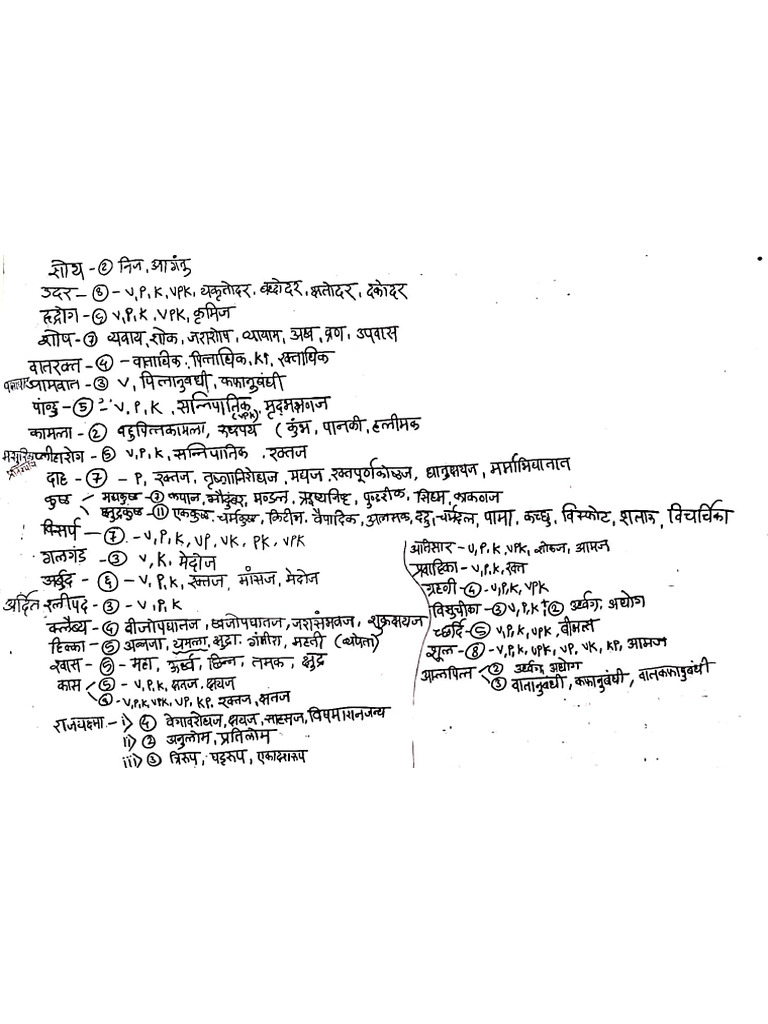 शोथ - ② निज, आगंतु
उदर - ⑧ - V, P, K, VPK, यकृतोदर, बध्दोदर, क्षतोदर, दकोदर
हृद्रोग - ⑤ V, P, K, VPK, कृमिज
शोष - ⑦ व्यवाय, शोक, जराशोष, व्यायाम, अध्व, व्रण, उपवास
वातरक्त - ④ - वाताधिक, पित्ताधिक, KP, रक्ताधिक
आमवात - ③ V, पित्तानुबंधी, कफानुबंधी
पांडु - ⑤ - V, P, K, सन्निपातिक (VPK), मृदभक्षणज
कामला - ② बहुपित्तकामला, रुध्दपथ (कुंभ, पानकी, हलीमक
प्लीहारोग - ⑤ V, P, K, सन्निपातिक, रक्तज
दाह - ⑦ - P, रक्तज, तृष्णानिरोधज, मद्यज, रक्तपूर्णकोष्ठज, धातुक्षयज, मर्माभिघातज
कुष्ठ महाकुष्ठ ⑦ कपाल, औदुंबर, मण्डल, ऋष्यजिह्व, पुण्डरीक, सिध्म, काकणज
क्षुद्रकुष्ठ - ⑪ एककुष्ठ, चर्मकुष्ठ, किटीभ, वैपादिक, अलसक, दद्रु, चर्मदल, पामा, कच्छु, विस्फोट, शतारु, विचर्चिका
विसर्प - ⑦ - V, P, K, VP, VK, PK, VPK
गलगंड - ③ V, K, मेदोज
अर्बुद - ⑥ - V, P, K, रक्तज, मांसज, मेदोज
अर्दित श्लीपद - ③ - V, P, K
क्लैब्य - ④ बीजोपघातज, ध्वजोपघातज, जरासंभवज, शुक्रक्षयज
हिक्का - ⑤ अन्नजा, यमला, क्षुद्रा, गंभीरा, महती (व्यपेता)
श्वास - ⑤ - महा, ऊर्ध्व, छिन्न, तमक, क्षुद्र
कास ⑤ - V, P, K, क्षतज, क्षयज
- V, P, K, VPK, VP, KP, रक्तज, क्षतज
राजयक्ष्मा - i) ④ वेगावरोधज, क्षयज, साहसज, विषमाशनजन्य
ii) ② अनुलोम, प्रतिलोम
iii) ③ त्रिरूप, षड्रूप, एकादशरूप
अतिसार - V, P, K, VPK, शोकज, आमज
प्रवाहिका - V, P, K, रक्त
ग्रहणी - ④ - V, P, K, VPK
विसुचीका - ③ V, P, K ② उर्ध्वग, अधोग
च्छर्दि - ⑤ V, P, K, VPK, बीभत्स
शूल - ⑧ - V, P, K, VPK, VP, VK, KP, आमज
आम्लपित्त ② उर्ध्वग, अधोग
③ वातानुबंधी, कफानुबंधी, वातकफानुबंधी